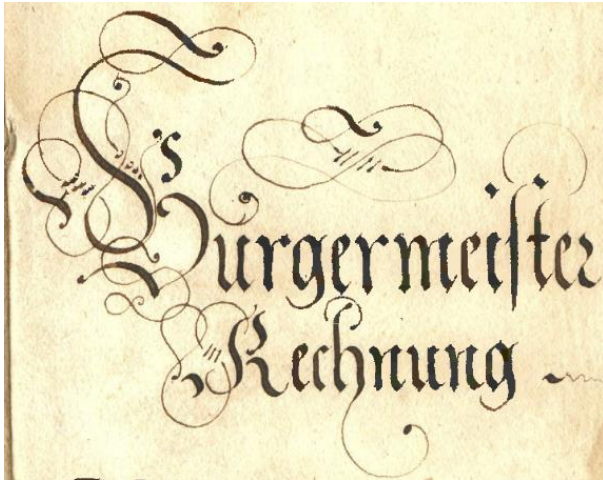 Burgermeiſter
Rechnung